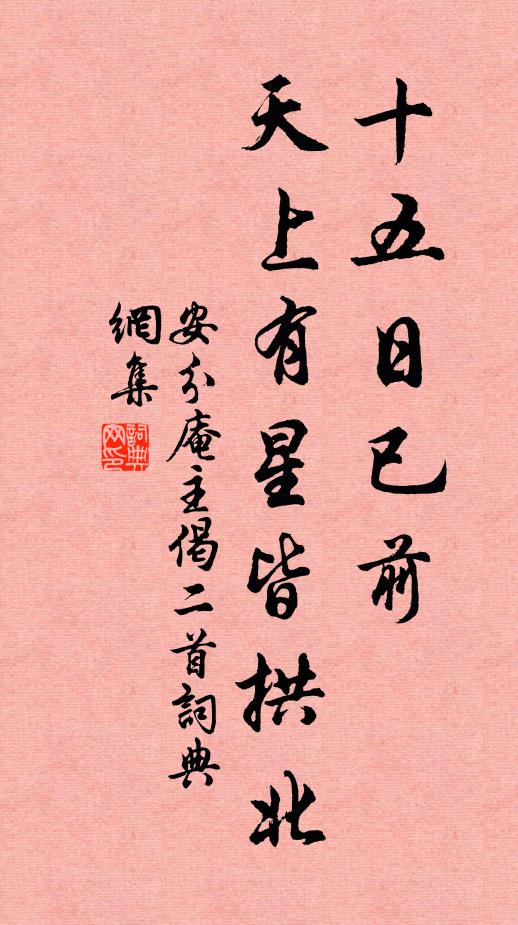 十五日已前
天上有星皆拱北
安分庵主偈二首詞典
網集
詞典
网印